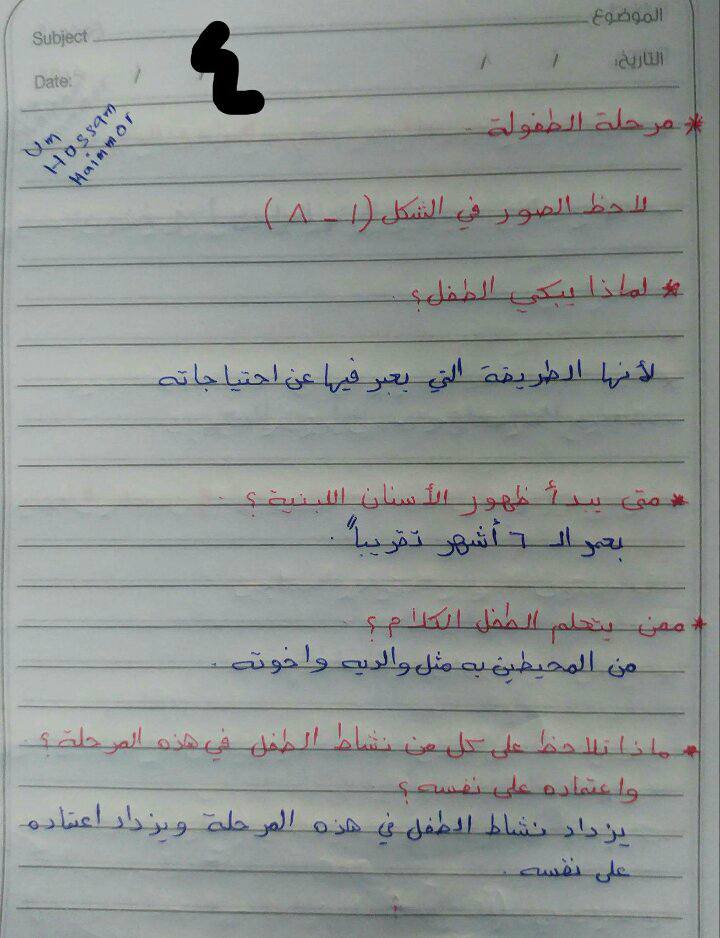 الموضوع
Subject
التاريخ:
Date: / / / /
Um
Hossam
Haimmor
* مرحلة الطفولة
لاحظ الصور في الشكل (١ - ٨)
* لماذا يبكي الطفل؟
لأنها الطريقة التي يعبر فيها عن احتياجاته
* متى يبدأ ظهور الأسنان اللبنية؟
بعمر الـ ٦ أشهر تقريباً.
* ممن يتعلم الطفل الكلام؟
من المحيطين به مثل والديه واخوته.
* ماذا تلاحظ على كل من نشاط الطفل في هذه المرحلة؟
واعتماده على نفسه؟
يزداد نشاط الطفل في هذه المرحلة ويزداد اعتماده
على نفسه.